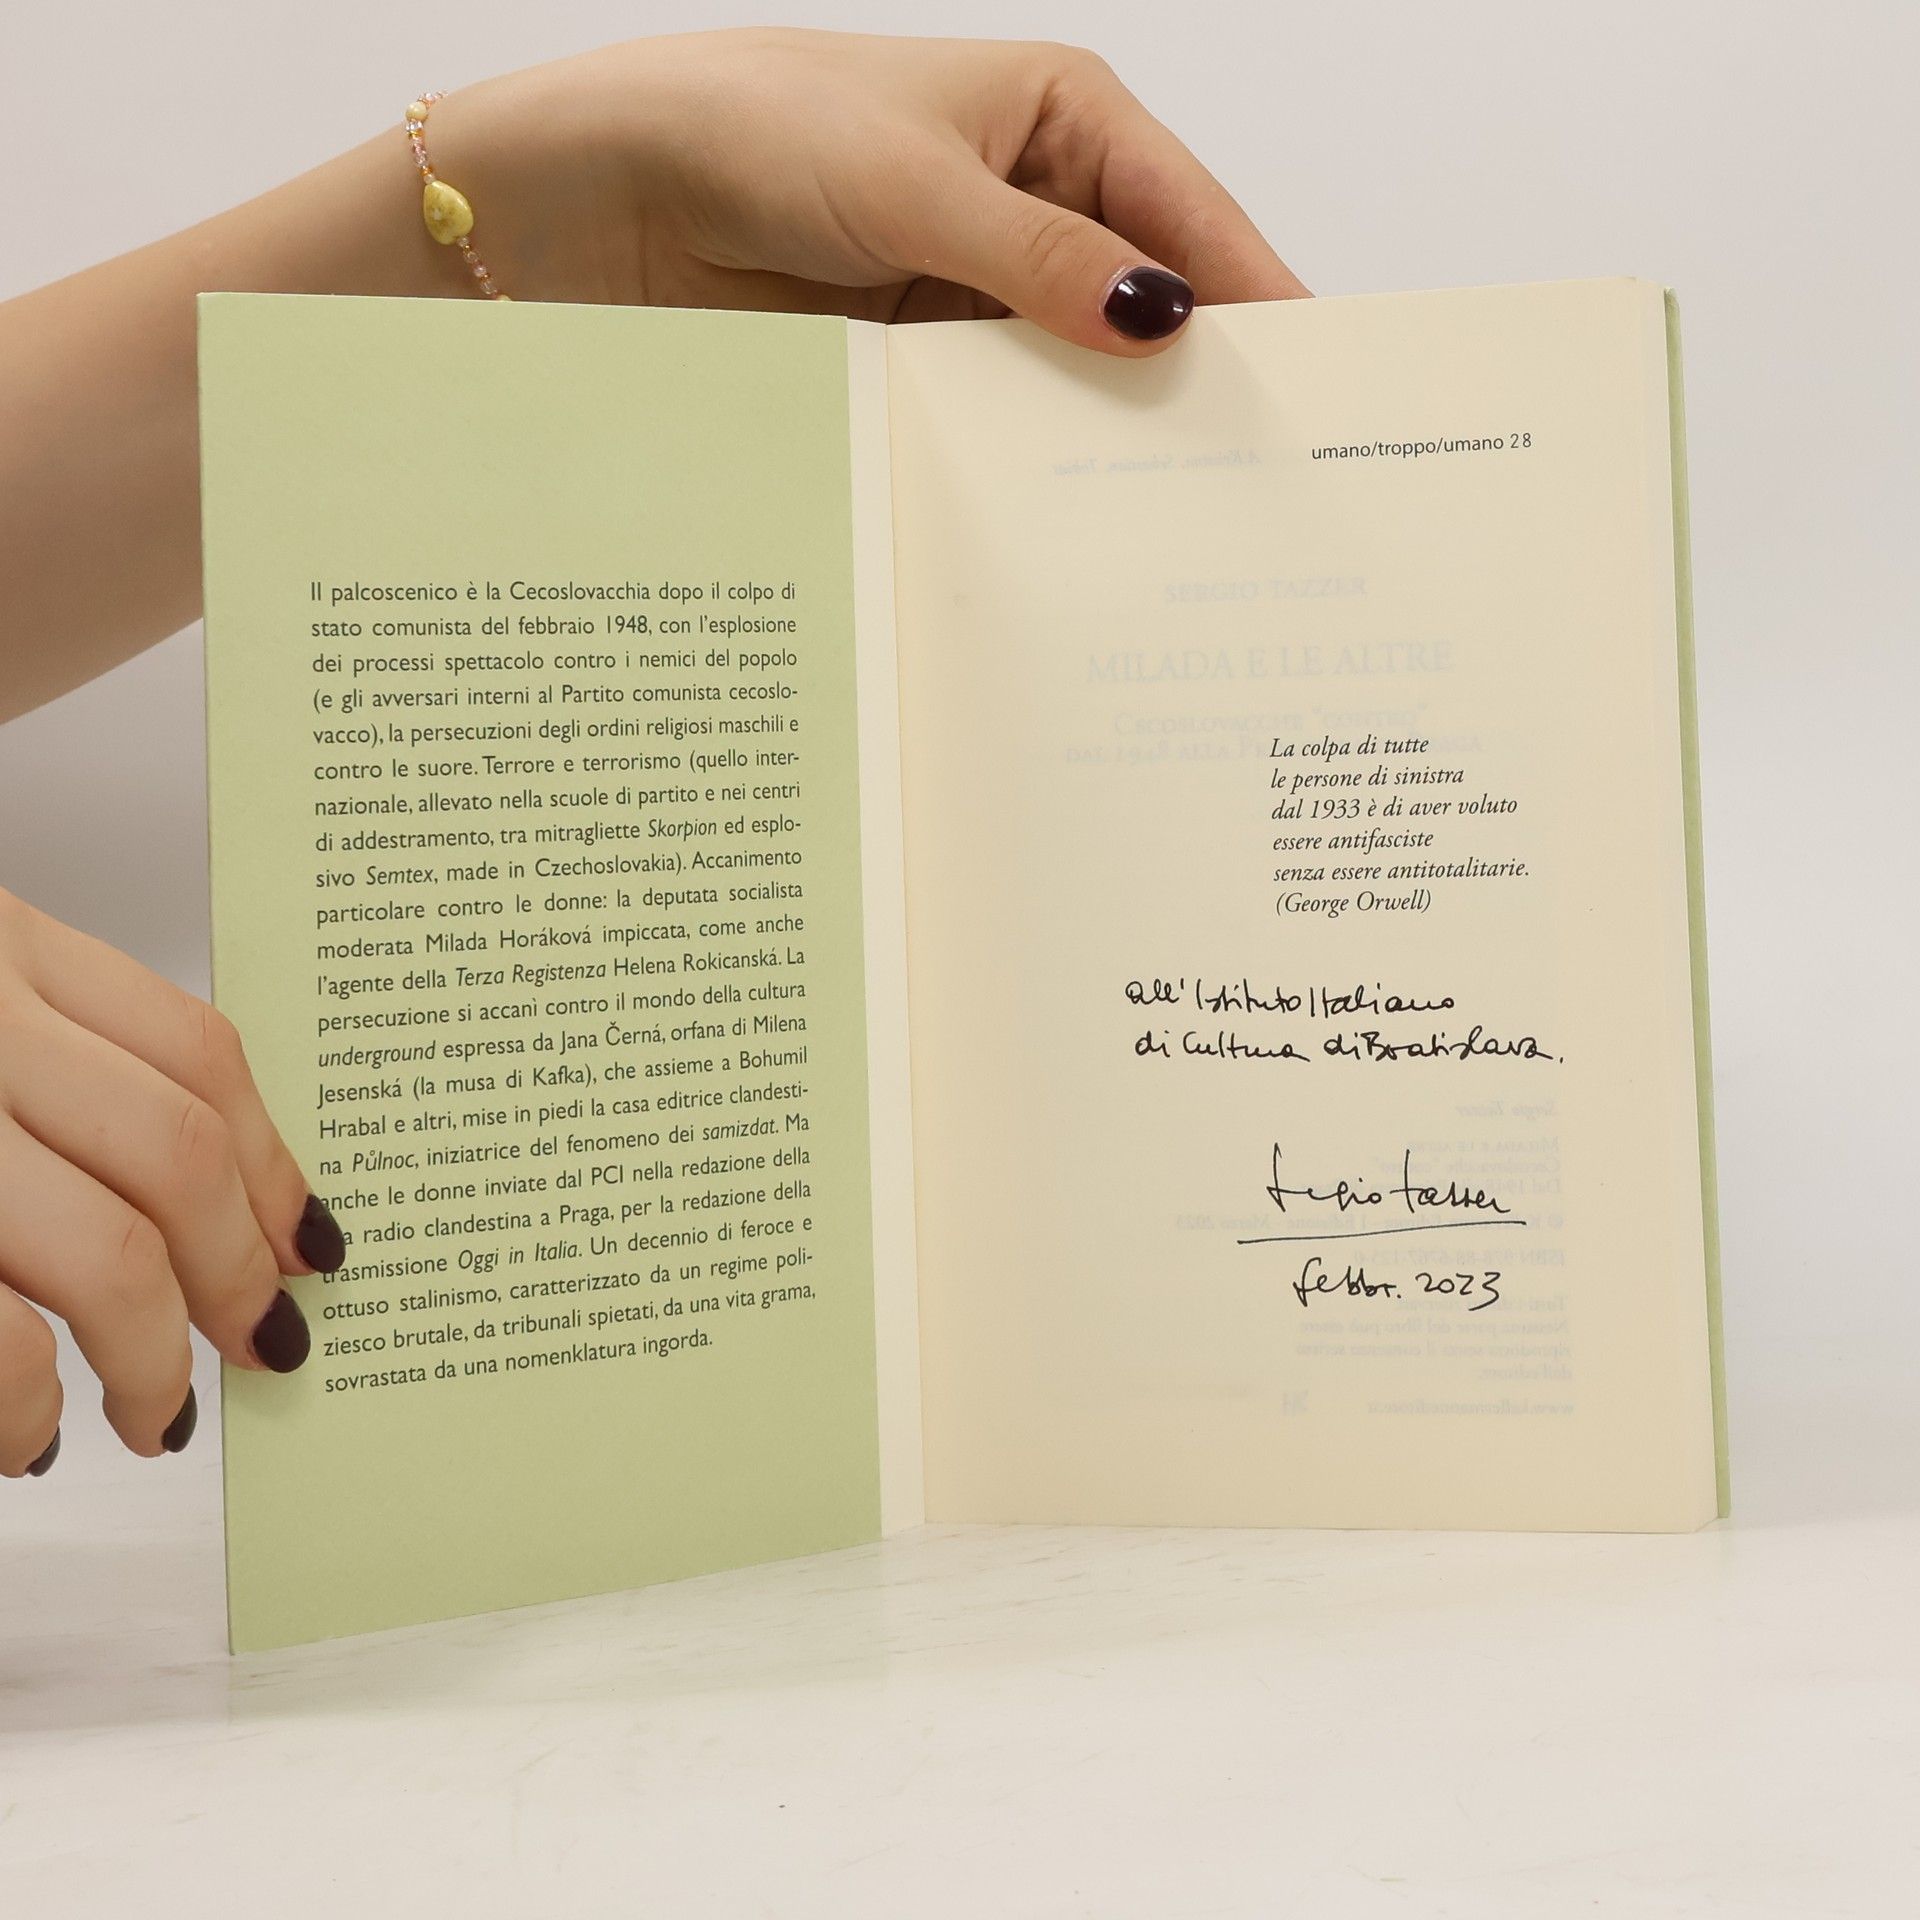 Il palcoscenico è la Cecoslovacchia dopo il colpo di
stato comunista del febbraio 1948, con l'esplosione
dei processi spettacolo contro i nemici del popolo
(e gli avversari interni al Partito comunista cecoslo-
vacco), la persecuzioni degli ordini religiosi maschili e
contro le suore. Terrore e terrorismo (quello inter-
nazionale, allevato nella scuole di partito e nei centri
di addestramento, tra mitragliette Skorpion ed esplo-
sivo Semtex, made in Czechoslovakia). Accanimento
particolare contro le donne: la deputata socialista
moderata Milada Horáková impiccata, come anche
l'agente della Terza Registenza Helena Rokicanská. La
persecuzione si accanì contro il mondo della cultura
underground espressa da Jana Černá, orfana di Milena
Jesenská (la musa di Kafka), che assieme a Bohumil
Hrabal e altri, mise in piedi la casa editrice clandesti-
na Půlnoc, iniziatrice del fenomeno dei samizdat. Ma
anche le donne inviate dal PCI nella redazione della
a radio clandestina a Praga, per la redazione della
trasmissione Oggi in Italia. Un decennio di feroce e
ottuso stalinismo, caratterizzato da un regime poli-
ziesco brutale, da tribunali spietati, da una vita grama,
sovrastata da una nomenklatura ingorda.
umano/troppo/umano 28
SERGIO TAZZER
MILADA E LE ALTRE
La colpa di tutte
le persone di sinistra
dal 1933 è di aver voluto
essere antifasciste
senza essere antitotalitarie.
(George Orwell)
all'Istituto Italiano
di Cultura di Bratislava.
Sergio Tazzer
febbr. 2023